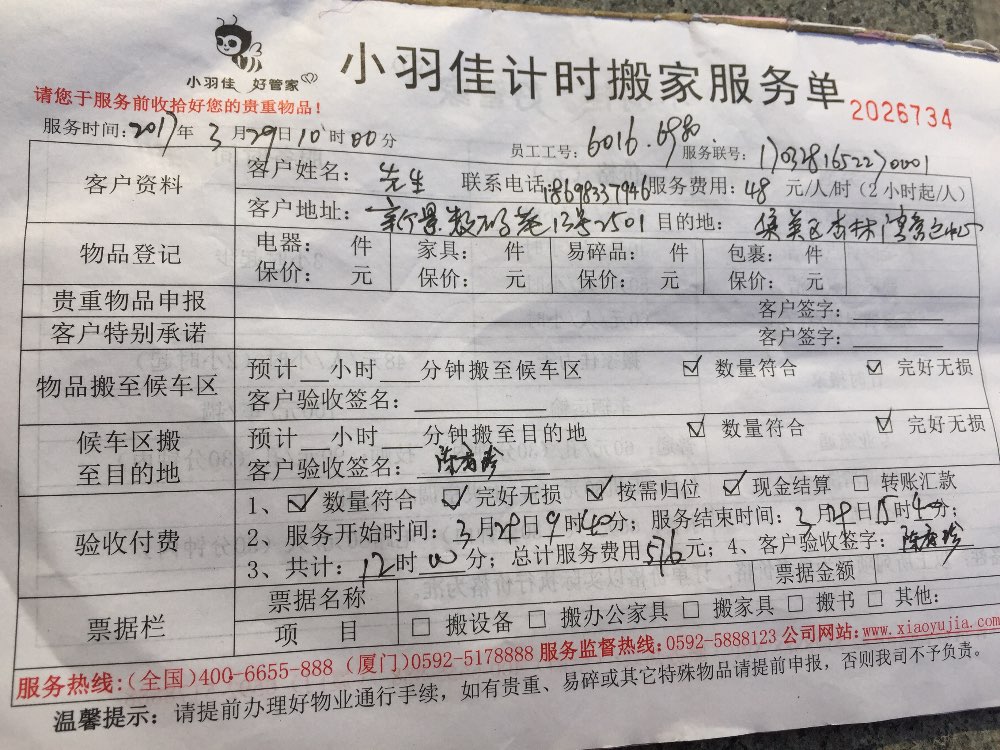 小羽佳 好管家
小羽佳计时搬家服务单
2026734
请您于服务前收拾好您的贵重物品!
服务时间:2017年3月29日10时00分 员工工号:6016.6980 服务联号:1703281652270001
客户资料 客户姓名: 先生 联系电话:18698337946 服务费用:48元/人/时(2小时起/人)
客户地址: 新景数码港13号2501 目的地:
物品登记 电器: 件 家具: 件 易碎品: 件 包裹: 件
保价: 元 保价: 元 保价: 元 保价: 元
贵重物品申报 客户签字:
客户特别承诺 客户签字:
物品搬至候车区 预计__小时___分钟搬至候车区 ☑ 数量符合 ☑ 完好无损
客户验收签名:
候车区搬至目的地 预计__小时___分钟搬至目的地 ☑ 数量符合 ☑ 完好无损
客户验收签名:
验收付费 1、☑数量符合 ☑完好无损 ☑按需归位 ☑现金结算 □转账汇款
2、服务开始时间:3月29日9时40分;服务结束时间:3月29日15时40分;
3、共计:12时00分;总计服务费用576元;4、客户验收签字:
票据栏 票据名称 票据金额
项 目 □ 搬设备 □ 搬办公家具 □ 搬家具 □ 搬书 □ 其他:
服务热线:(全国)400-6655-888(厦门)0592-5178888 服务监督热线:0592-5888123 公司网站:www.xiaoyujia.com
温馨提示:请提前办理好物业通行手续,如有贵重、易碎或其它特殊物品请提前申报,否则我司不予负责。